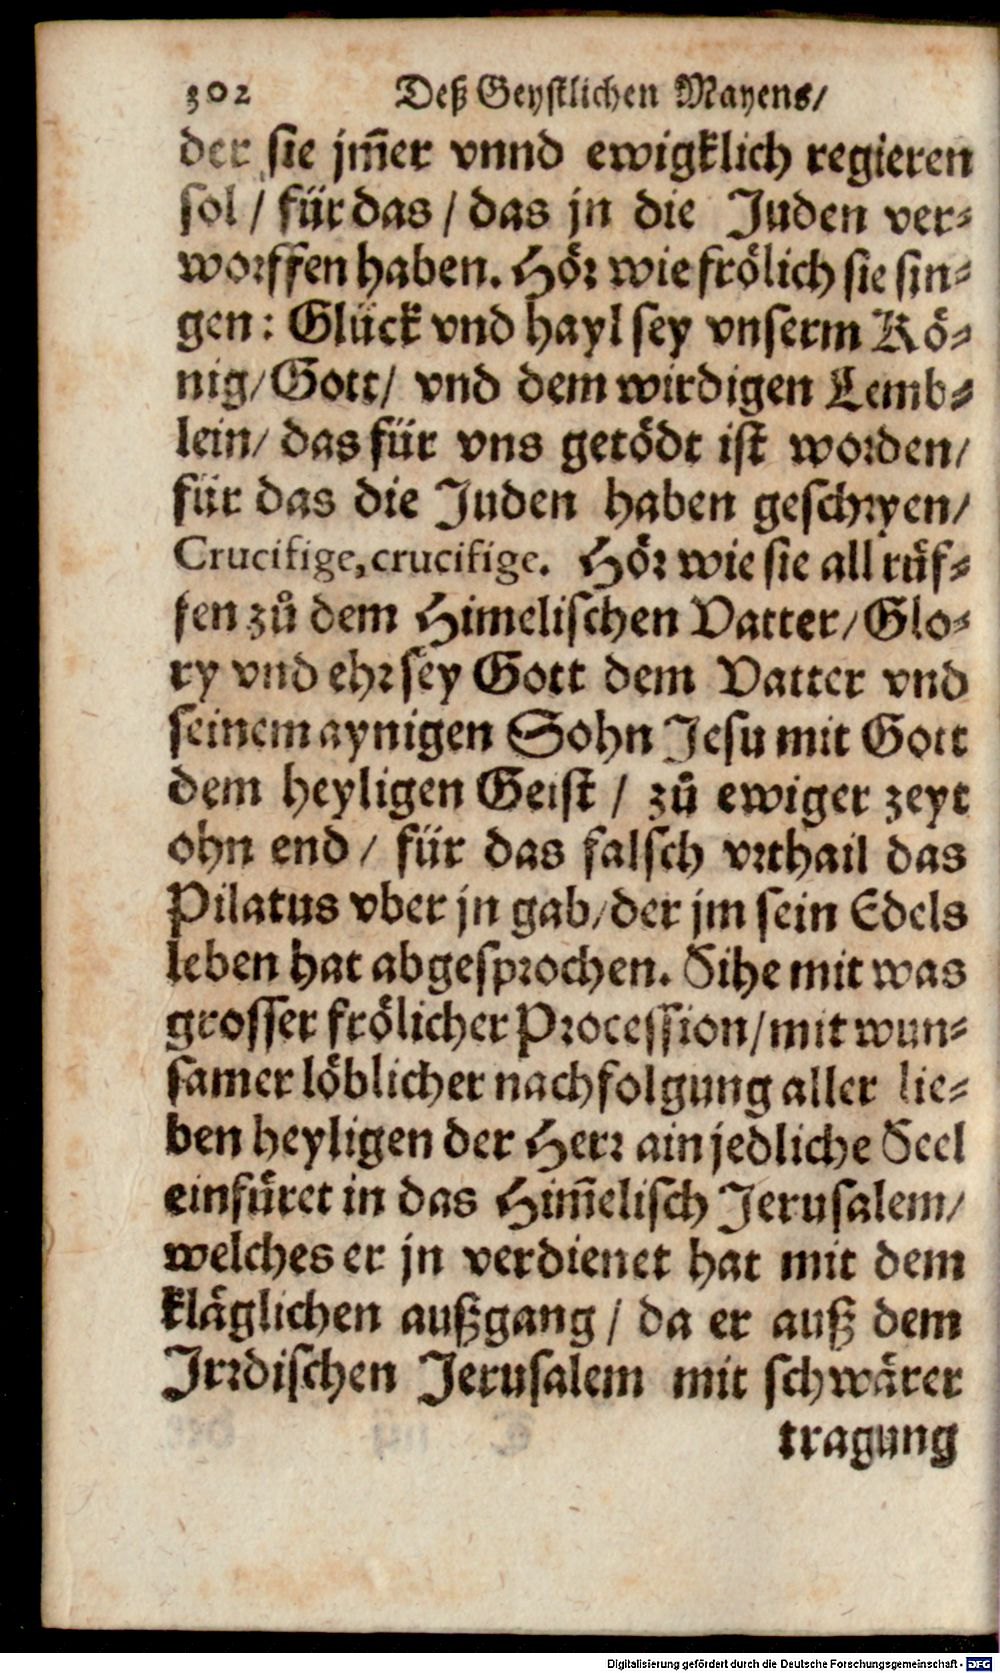 302 Deß Geystlichen Mayens/
der sie jm̃er vnnd ewigklich regieren
sol / für das / das jn die Juden ver⸗
worffen haben. Hör wie frölich sie sin⸗
gen: Glück vnd hayl sey vnserm Kö⸗
nig/ Gott/ vnd dem wirdigen Lemb⸗
lein/ das für vns getödt ist worden/
für das die Juden haben geschryen/
Crucifige, crucifige. Hör wie sie all rüf⸗
fen zů dem Himelischen Vatter/ Glo⸗
ry vnd ehr sey Gott dem Vatter vnd
seinem aynigen Sohn Jesu mit Gott
dem heyligen Geist / zů ewiger zeyt
ohn end / für das falsch vrthail das
Pilatus vber jn gab/ der jm sein Edels
leben hat abgesprochen. Sihe mit was
grosser frölicher Procession/ mit wun⸗
samer löblicher nachfolgung aller lie⸗
ben heyligen der Herr ain jedliche Seel
einfüret in das Him̃elisch Jerusalem/
welches er jn verdienet hat mit dem
kläglichen außgang / da er auß dem
Jrrdischen Jerusalem mit schwärer
tragung
Digitalisierung gefördert durch die Deutsche Forschungsgemeinschaft - DFG